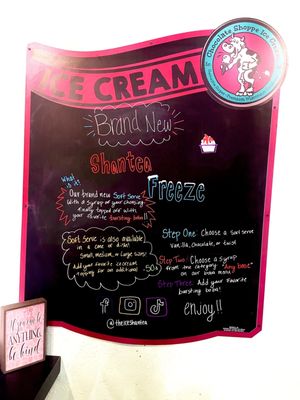 Chocolate Shoppe Ice Cream
ICE CREAM
Brand New
Shantea
Freeze
What is it?
Our brand new Soft Serve
with a syrup of your choosing
finally topped off with
your favorite bursting boba!!
Soft Serve is also available
in a cone or dish!
Small, medium, or Large sizes!
Add your favorite ice cream
topping for an additional .50¢
Step One: Choose a soft serve
Vanilla, Chocolate, or twist
Step Two: Choose a syrup
from the category "Any Base"
on our main menu
Step Three: Add your favorite
bursting boba!
enjoy!!
@theiceshantea
ANYTHING
be kind